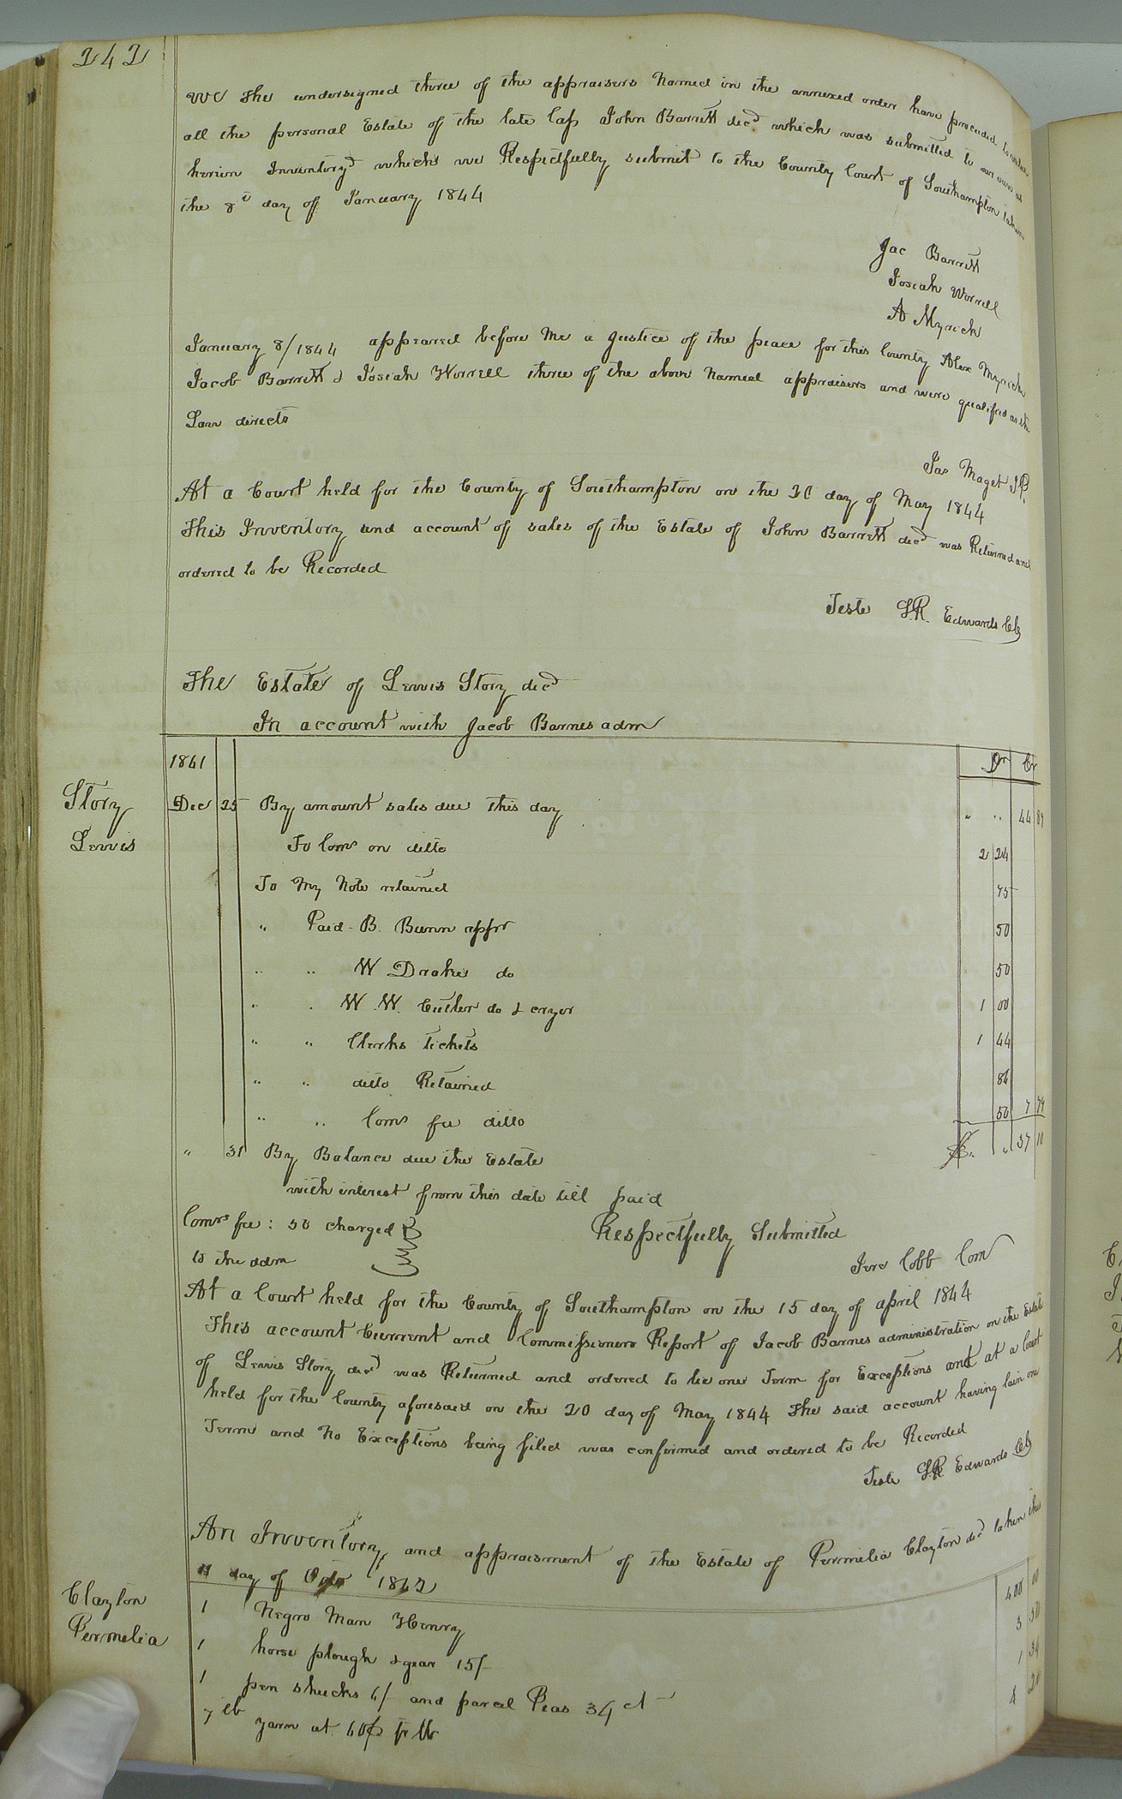 242
We the undersigned three of the appraisers Named in the annexed order have proceeded to
all the personal Estate of the late Cap John Barrett decd which was submitted to our view as
herein Inventoryd which we Respectfully submit to the County Court of Southampton taken
the 8th day of January 1844
Jac Barrett
Josiah Worrell
A Myrick
January 8/1844 appeared before Me a justice of the peace for this County Alex Myrick
Jacob Barrett & Josiah Worrell three of the above Named appraisers and were qualified as the
Law directs
Jas Maget J.P.
At a Court held for the County of Southampton on the 20 day of May 1844
This Inventory and account of sales of the Estate of John Barrett decd was Returned and
ordered to be Recorded
Teste L.R. Edwards Clk
The Estate of Lewis Story decd
In account with Jacob Barnes adm
1841 Dr Cr
Story Lewis
Dec 25 By amount sales due this day " " 44 89
To Coms on ditto 2 24
To My Note retained 75
" Paid B. Bunn appr 50
" " W Drake do 50
" " W. W. Cutler do & cryer 1 00
" " Clerks Tickets 1 44
" " ditto Retained 86
" " Coms fee ditto 50 7 79
" 31 By Balance due the Estate $ " 37 10
with interest from this date till paid
Coms fee : 50 charged
to the adm
Respectfully Submitted
Jere Cobb Com
At a Court held for the County of Southampton on the 15 day of april 1844
This account Current and Commissioners Report of Jacob Barnes administration on the Estate
of Lewis Story decd was Returned and ordered to lie one Term for Exceptions and at a Court
held for the County aforesaid on the 20 day of May 1844 The said account having lain one
Term and No Exceptions being filed was confirmed and ordered to be Recorded
Teste L.R. Edwards Clk
An Inventory and appraisment of the Estate of Permelia Clayton decd taken this
11 day of Octo 1842
Clayton Permelia
1 Negro Man Henry 400 00
1 horse plough & gear 15/- 3 50
1 pen shucks 6/- and parcel Peas 34 ct 1 34
7 lb yarn at 60¢ pr lb 4 20